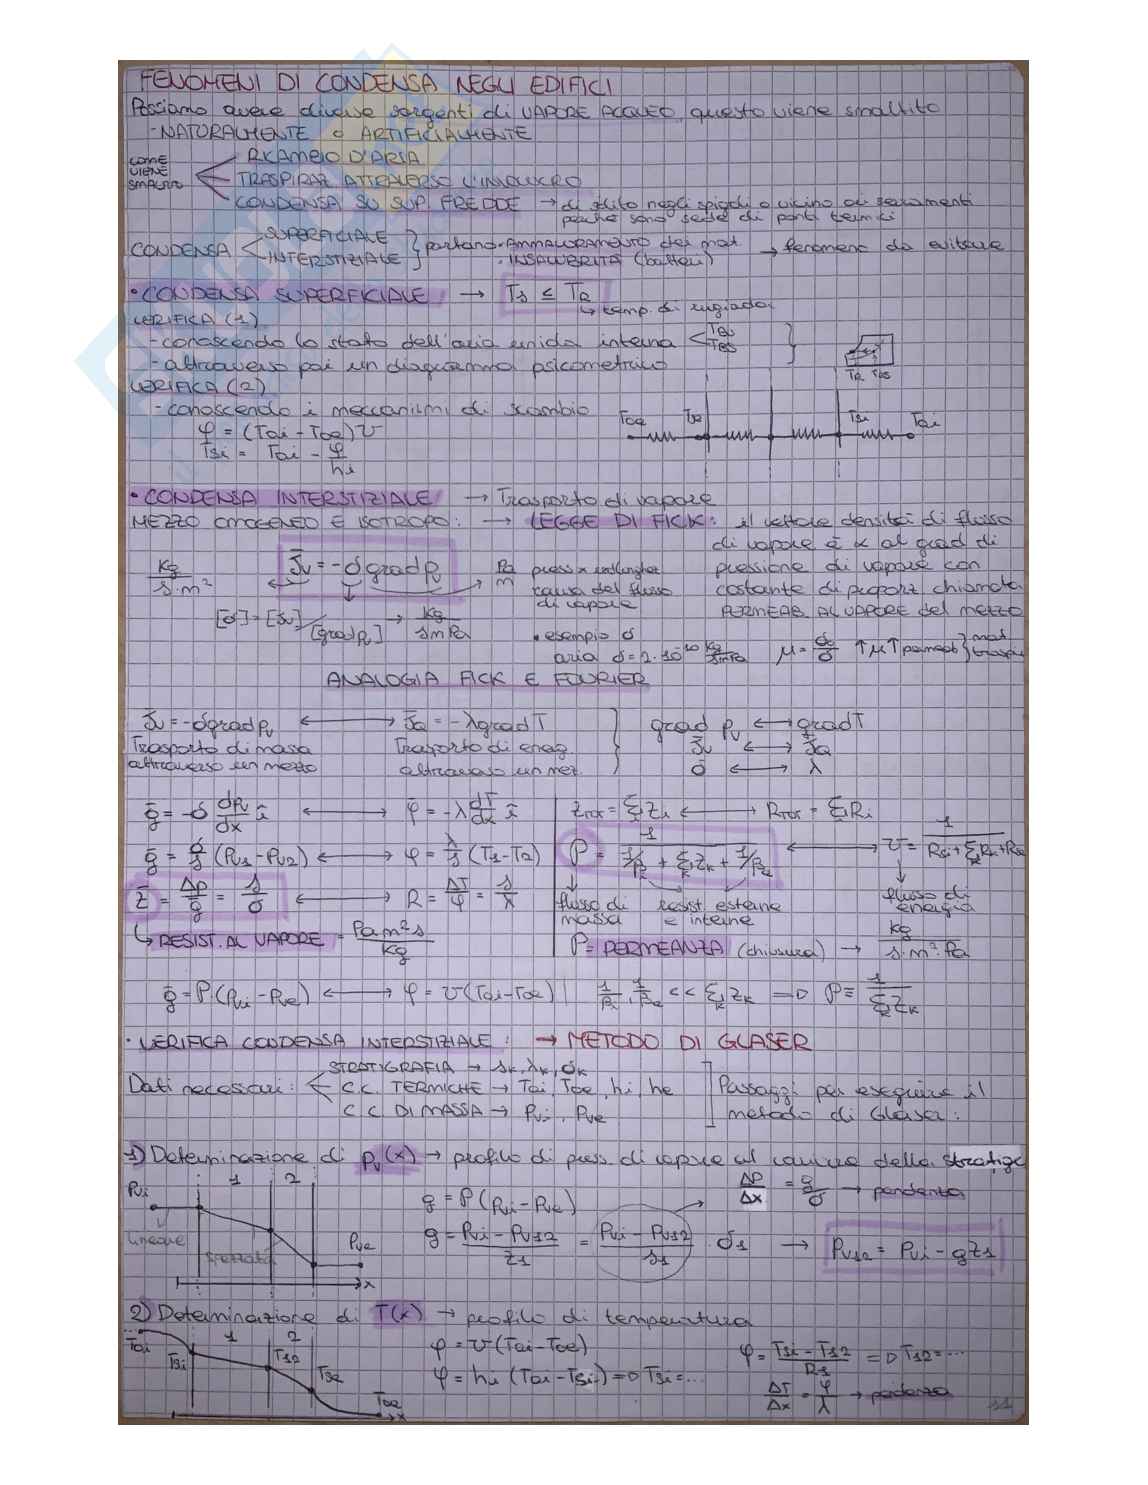 FENOMENI DI CONDENSA NEGLI EDIFICI
Possiamo avere diverse sorgenti di VAPORE ACQUEO, questo viene smaltito
- NATURALMENTE o ARTIFICIALMENTE
COME VIENE SMALTITO
RICAMBIO D'ARIA
TRASPIRAZ ATTRAVERSO L'INVOLUCRO
CONDENSA SU SUP. FREDDE → di solito negli spigoli o vicino ai serramenti
perché sono sede di ponti termici
CONDENSA < SUPERFICIALE } portano • AMMALORAMENTO dei mat. → fenomeno da evitare
INTERSTIZIALE • INSALUBRITÀ (batteri)
• CONDENSA SUPERFICIALE → Ts ≤ TR
↳ temp. di rugiada
VERIFICA (1)
- conoscendo lo stato dell'aria umida interna < TBU
TBS
- attraverso poi un diagramma psicometrico
TR TBS
VERIFICA (2)
- conoscendo i meccanismi di scambio
φ = (Tai - Tae) U
Tsi = Tai - φ/hi
Tae Tse Tsi Tai
• CONDENSA INTERSTIZIALE → Trasporto di vapore
MEZZO OMOGENEO E ISOTROPO: → LEGGE DI FICK: il vettore densità di flusso
di vapore è ∝ al grad di
pressione di vapore con
costante di proporz chiamata
PERMEAB. AL VAPORE del mezzo
kg/s·m² J̄v = -δ grad pv Pa/m
causa del flusso
di vapore
[δ] = [Jv]/[grad pv] → kg/smPa
• esempio δ
aria δ = 2·10⁻¹⁰ kg/smPa μ = δa/δ ↑μ↑ permeab } mat
ANALOGIA FICK E FOURIER
J̄v = -δ grad pv ⟷ J̄a = -λ grad T } grad pv ⟷ grad T
Trasporto di massa Trasporto di energ. J̄v ⟷ J̄a
attraverso un mezzo attraverso un mez. δ ⟷ λ
ḡ = -δ dpv/dx î ⟷ φ̄ = -λ dT/dx î
ḡ = δ/s (Pv1 - Pv2) ⟷ φ = λ/s (T1 - T2)
Z = ΔP/ḡ = s/δ ⟷ R = ΔT/φ = s/λ
↳ RESIST. AL VAPORE = Pa m² s/kg
ZTOT = Σi Zi ⟷ RTOT = Σi Ri
P = 1/(1/βi + Σk Zk + 1/βe) ⟷ U = 1/(Rsi + Σk Rk + Rse)
flusso di massa
resist. esterne e interne
flusso di energia
P = PERMEANZA (chiusura) → kg/s·m²·Pa
ḡ = P (Pvi - Pve) ⟷ φ = U (Tai - Tae) | 1/βi, 1/βe << Σk Zk => P ≅ 1/Σk Zk
• VERIFICA CONDENSA INTERSTIZIALE: → METODO DI GLASER
Dati necessari: < STRATIGRAFIA → sk, λk, δk
C.C. TERMICHE → Tai, Tae, hi, he
C.C. DI MASSA → Pvi, Pve
Passaggi per eseguire il
metodo di Glaser:
1) Determinazione di pv(x) → profilo di press. di vapore al variare della stratigr
Pvi 1 2 Pve x
Lineare
spezzata
g = P (Pvi - Pve)
ΔP/Δx = g/δ → pendenza
g = (Pvi - Pv12)/Z1 = (Pvi - Pv12)/s1 · δ1 → Pv12 = Pvi - gZ1
2) Determinazione di T(x) → profilo di temperatura
Tai Tsi 1 T12 2 Tse Tae x
φ = U (Tai - Tae)
φ = hi (Tai - Tsi) => Tsi = ...
φ = (Tsi - T12)/R1 => T12 = ...
ΔT/Δx = φ/λ → pendenza